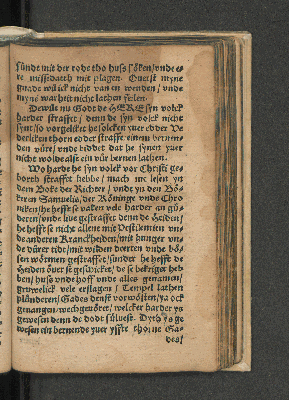 sünde mit der rode tho huss söken/vnde ere
missedaeth mit plagen. Querst myne
gnade wil ick nicht van en wenden/vnde
myne warheit nicht lathen feilen.
Dewile nu Godt de HERE syn volck
harder straffet/denn de syn volck nicht
synt/so vorgelikt he solcken yuer edder Vederlicken
thorn edder straffe einem bernenden
vüre/vnde biddet dat he synen yuer
nicht wolde alse ein vür bernen lathen.
Wo harde he syn volck vor Christi geborth
straffet hebbe/mach me lesen yn
dem Boke der Richter/vnde yn den Bökeren
Samuelis/der Köninge vnde Chroniken/he
hefft se vaken vele harder angrepen/vnde
live gestraffet denn de Heiden/
he hefft se nicht allene mit Pestilentien vnde
anderen Kranckheiden/mit hunger vnde
dürer tidt/mit wilden deerten vnde bösen
wörmen gestraffet/sunder he hefft de
Heiden över se geschicket/de se bekriget hebben/
huss vnde hoff vnde alles genamen/
gruwelick vele erslagen/Tempel lathen
plünderen/Gades denst vorwösten/ya ock
gefangen/wechgevöret/welcker harder ys
gewesen denn de dodt sülvest. Dyth ys gewesen
ein bernende yuer effte thorne Gades/